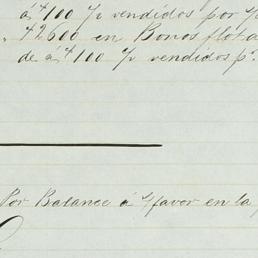 á $100 c/u vendidos por
" $2600 en Bonos flota
de á $100 c/u vendidos p.
Por Balance á s/favor en la